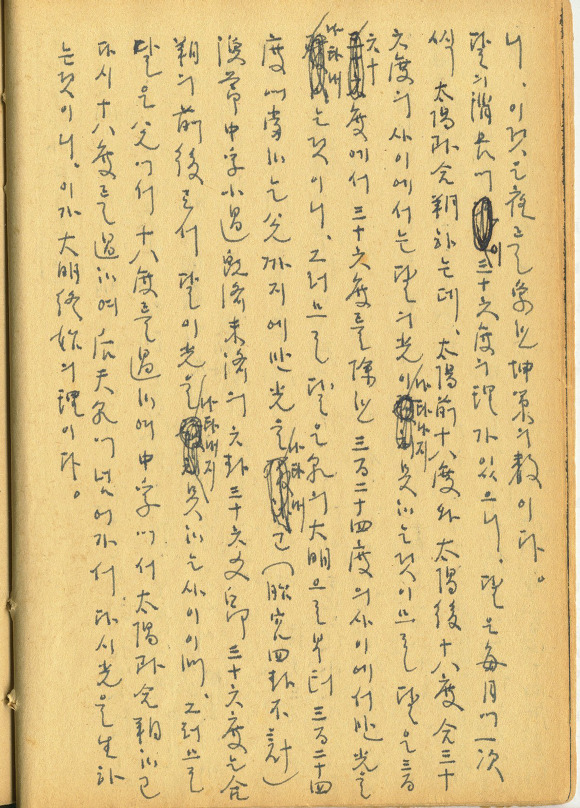 니, 이것은 夜를 象한 坤策의 數이다。
달의 消長에 이 三十六度의 理가 있으니, 달은 每月에 一次
씩 太陽과 合朔하는데, 太陽前十八度와 太陽後十八度 合三十
六度의 사이에서는 달의 光이 나타나지 못하는것이므로 달은 三百
六十度에서 三十六度를 除한 三百二十四度의 사이에서만 光을
나타내는것이니, 그러므로 달은 乾의 大明으로부터 三百二十四
度에 當하는 兌까지에만 光을 나타내고 (四卦不計)
渙節中孚小過旣濟未濟의 六卦 三十六爻 即 三十六度는 合
朔의 前後로서 달이 光을 나타내지 못하는 사이이며, 그러므로
달은 兌에서 十八度를 過하여 中孚에서 太陽과 合朔하고
다시 十八度를 過하여 后天乾에 넘어가서 다시 光을 生하
는것이니, 이가 大明終始의 理이다。